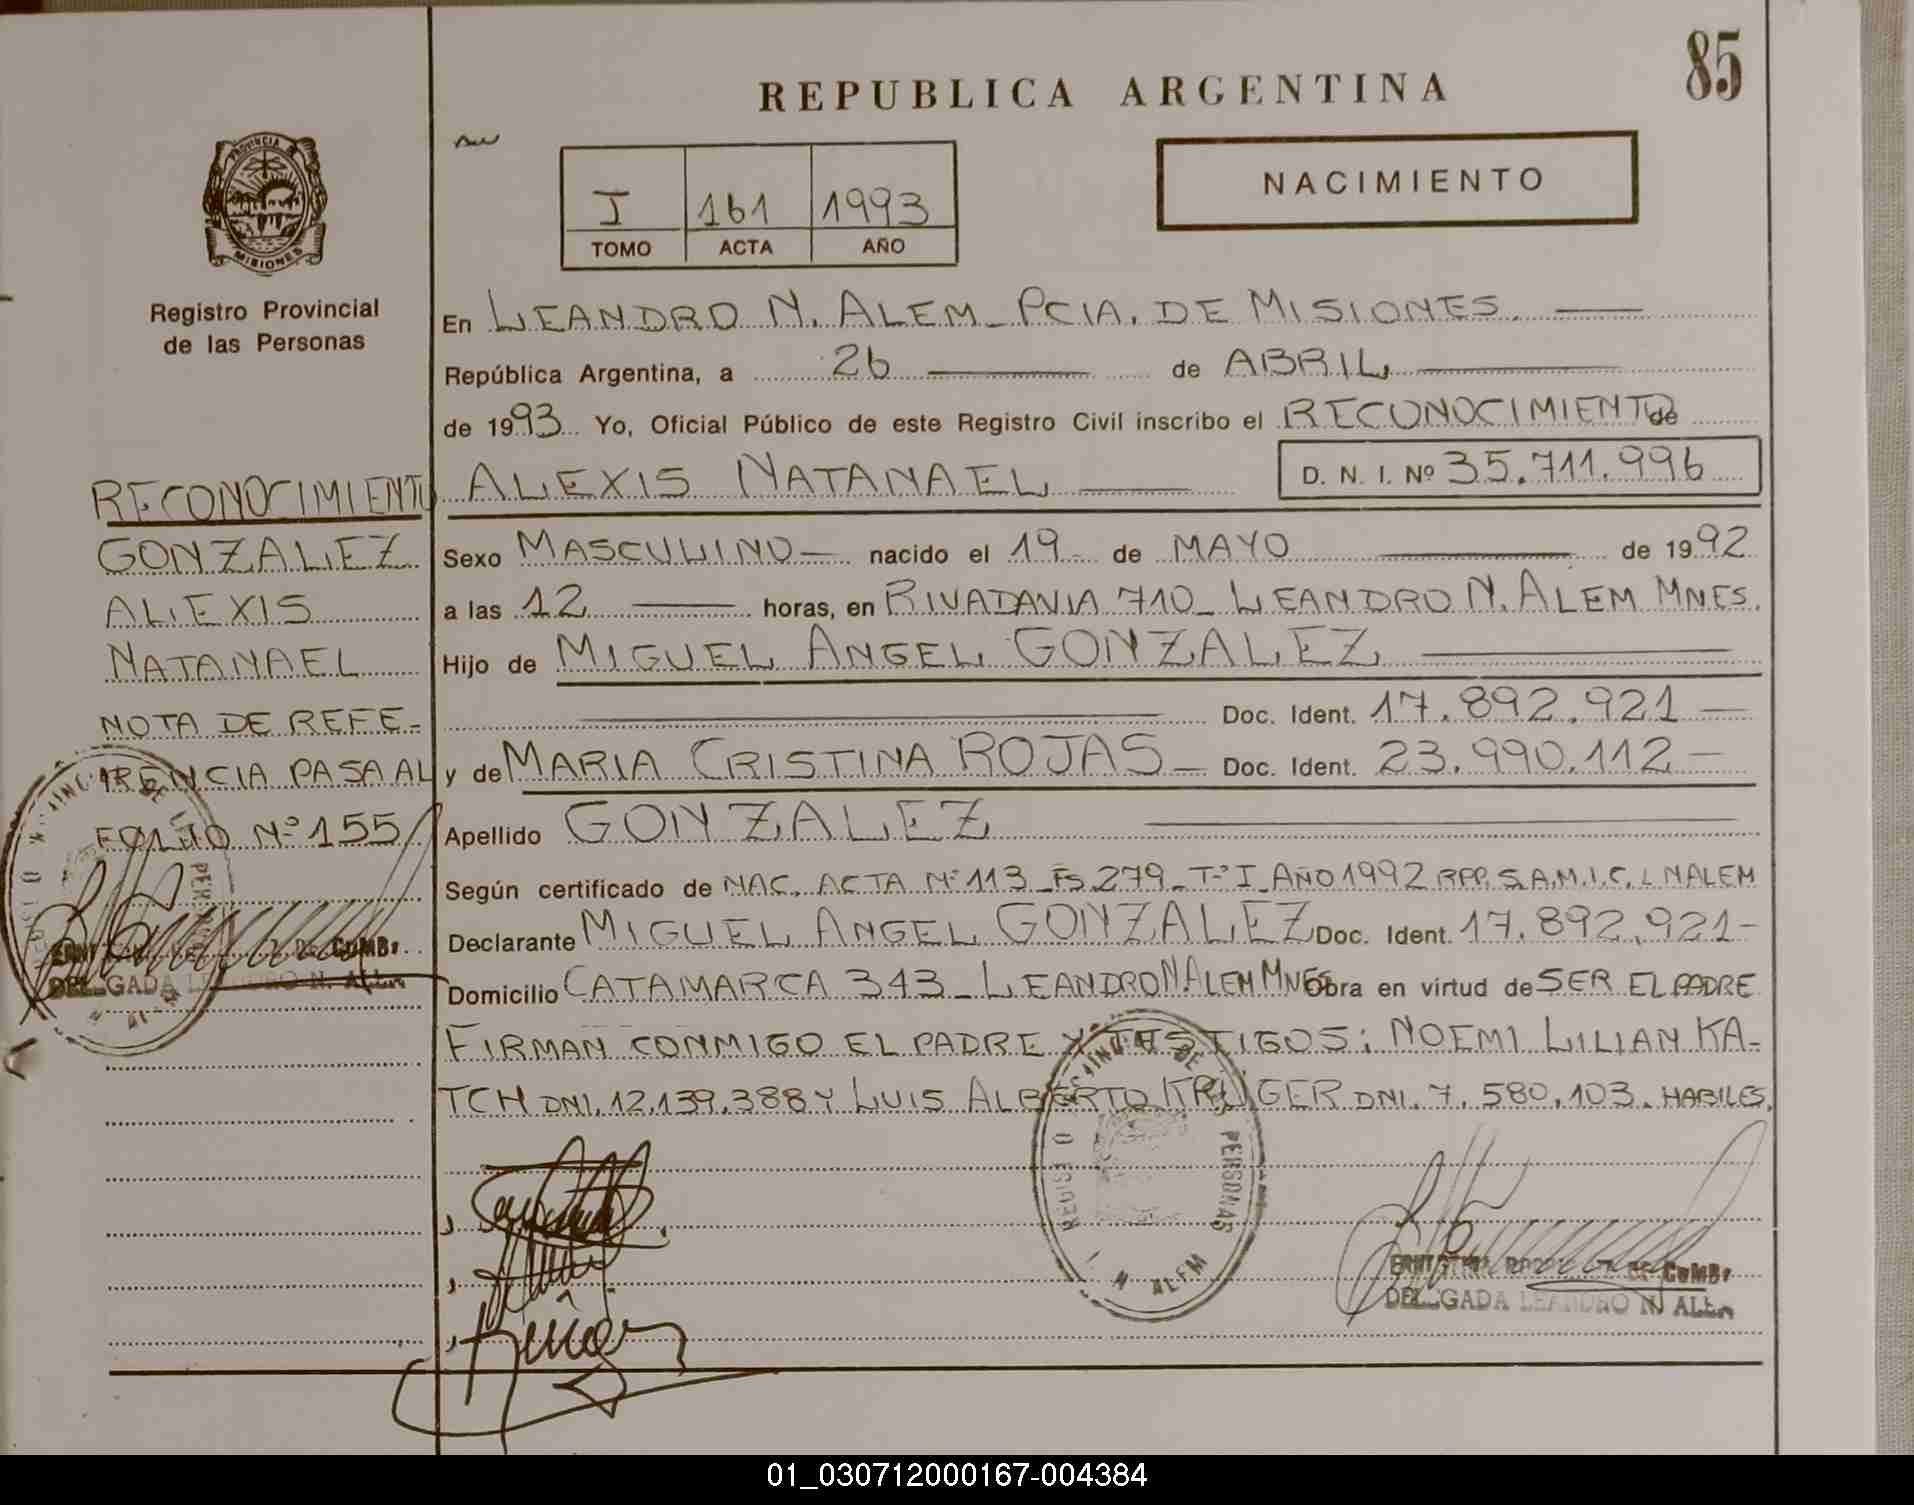 85
REPUBLICA ARGENTINA
PROVINCIA DE
MISIONES
Registro Provincial
de las Personas
I 161 1993
TOMO ACTA AÑO
NACIMIENTO
En LEANDRO N. ALEM_PCIA. DE MISIONES.
República Argentina, a 26 de ABRIL
de 1993 Yo, Oficial Público de este Registro Civil inscribo el RECONOCIMIENTO de
ALEXIS NATANAEL D. N. I. Nº 35.711.996
Sexo MASCULINO nacido el 19 de MAYO de 1992
a las 12 horas, en RIVADAVIA 710_LEANDRO N. ALEM MNES.
Hijo de MIGUEL ANGEL GONZALEZ
Doc. Ident. 17.892.921
y de MARIA CRISTINA ROJAS Doc. Ident. 23.990.112
Apellido GONZALEZ
Según certificado de NAC. ACTA Nº 113_Fs.279_Tº I_AÑO 1992 RPP. S.A.M.I.C. L NALEM
Declarante MIGUEL ANGEL GONZALEZ Doc. Ident. 17.892.921
Domicilio CATAMARCA 343_LEANDRO N. ALEM MNES Obra en virtud de SER EL PADRE
FIRMAN CONMIGO EL PADRE Y TESTIGOS: NOEMI LILIAN KA-
TCH DNI. 12.139.388 Y LUIS ALBERTO KRUGER DNI. 7.580.103. HABILES.
RECONOCIMIENTO
GONZALEZ
ALEXIS
NATANAEL
NOTA DE REFE-
RENCIA PASA AL
FOLIO Nº 155
PERSONAS
N ALEM
DE CUMBr
LEANDRO N. ALE
01_030712000167-004384